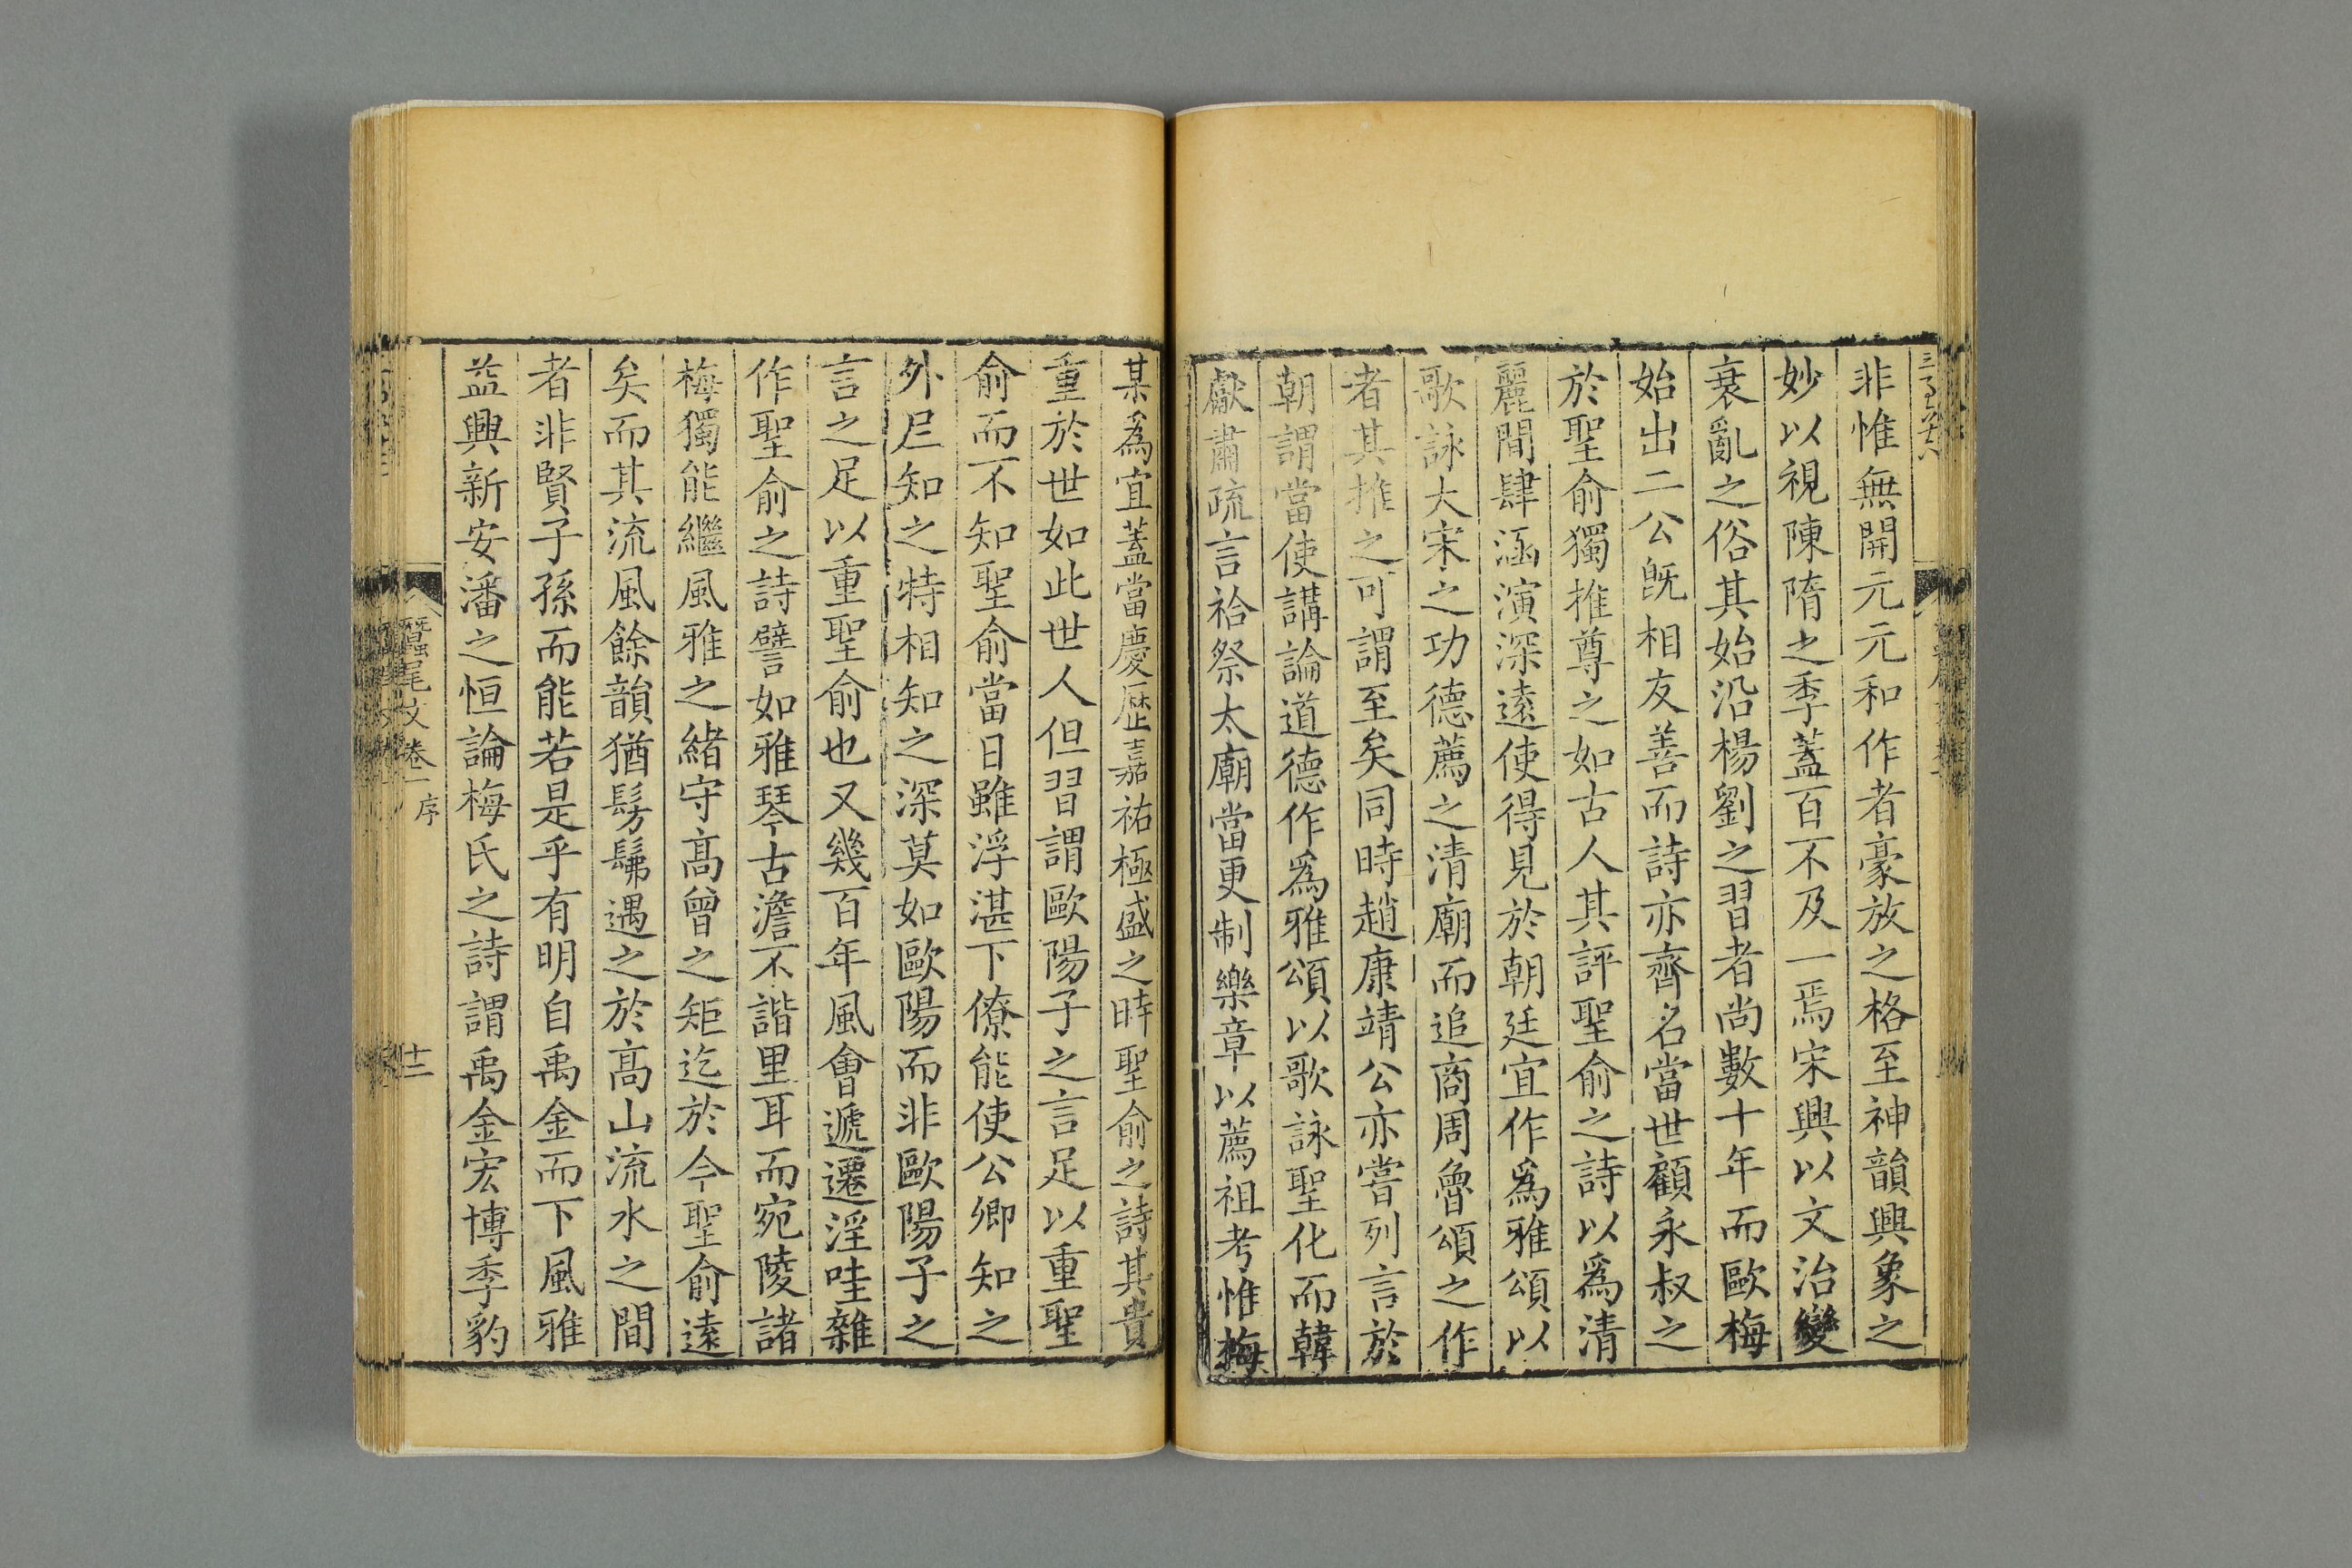 非惟無開元元和作者豪放之格至神韻興象之
妙以視陳隋之季蓋百不及一焉宋興以文治變
衰亂之俗其始沿楊劉之習者尚數十年而歐梅
始出二公旣相友善而詩亦齊名當世顧永叔之
於聖俞獨推尊之如古人其評聖俞之詩以爲清
麗間肆涵演深遠使得見於朝廷宜作爲雅頌以
歌詠大宋之功德薦之清廟而追商周魯頌之作
者其推之可謂至矣同時趙康靖公亦嘗列言於
朝謂當使講論道德作爲雅頌以歌詠聖化而韓
獻肅疏言祫祭太廟當更制樂章以薦祖考惟梅
某爲宜蓋當慶歷嘉祐極盛之時聖俞之詩其貴
重於世如此世人但習謂歐陽子之言足以重聖
俞而不知聖俞當日雖浮湛下僚能使公卿知之
外尼知之特相知之深莫如歐陽而非歐陽子之
言之足以重聖俞也又幾百年風會遞遷淫哇雜
作聖俞之詩譬如雅琴古澹不諧里耳而宛陵諸
梅獨能繼風雅之緒守高曾之矩迄於今聖俞遠
矣而其流風餘韻猶髣髴遇之於高山流水之間
者非賢子孫而能若是乎有明自禹金而下風雅
益興新安潘之恒論梅氏之詩謂禹金宏博季豹
蠶尾文卷一 序 十二